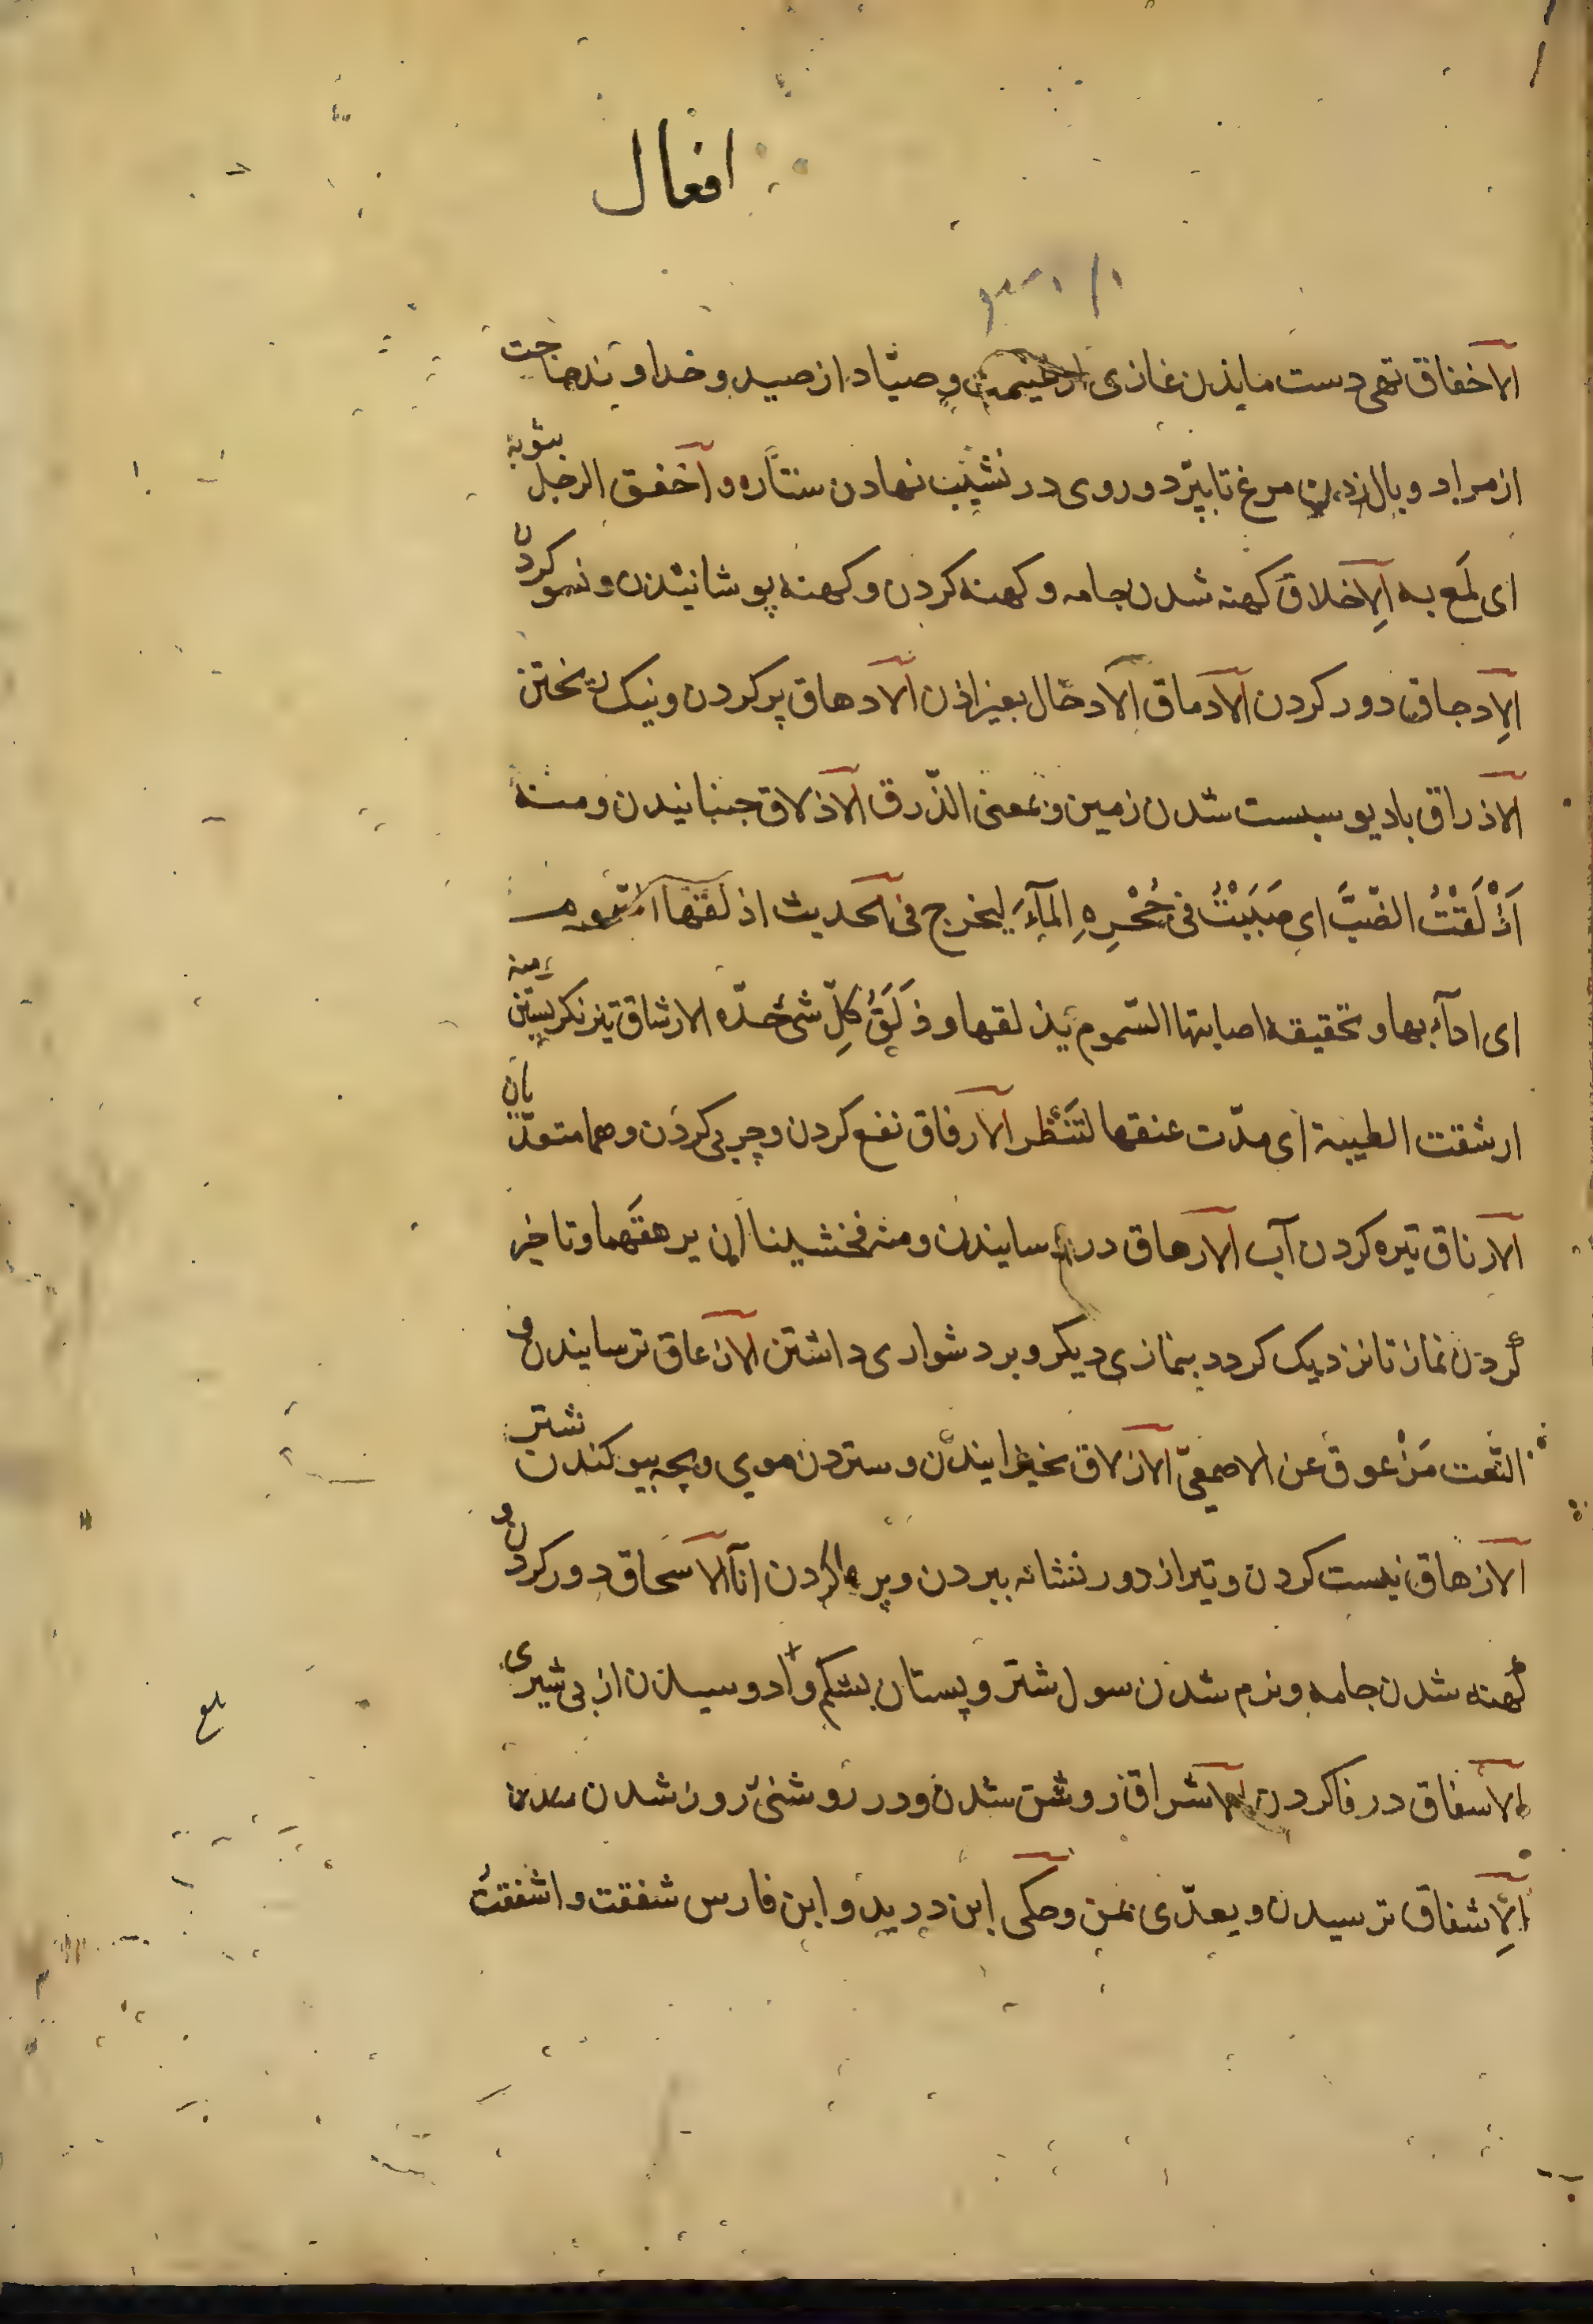 افعال
الاخفاق تهی دست مایذن غازی از غنیمت و صیّاد از صید و خداوند حاجت
از مراد و بال زدن مرغ تا بپرّد و روی در نشیب نهادن ستاره و اخفق الرجل بثوبه
ای لمَع به الاِخلاق کهنه شدن جامه و کهنه کردن و کهنه پوشانیدن و نسو کردن
الاِدحاق دور کردن الادماق الادخال بغیر اذن الادهاق پر کردن و نیک ریختن
الاذراق بادیو سبست شدن زمین و بمعنی الذّرق الاذلاق جنبانیدن و منه
اَذْلَقْتُ الضّبَّ ای صَبَبْتُ فی جُحْرِهِ المآءَ لیخرج فی الحدیث اذلقها السموم
ای اذآبها و تحقیقه اصابتها السّموم بذلقها و ذَلَقُ کلِّ شیء حدّه الارشاق تیز نکریستن منه
ارشقت الظبیة ای مدّت عنقها لتَنْظر الارفاق نفع کردن و چربی کردن و هما متعدّیان
الارناق تیره کردن آب الارهاق در رسایندن و منه فخشینا ان یرهقهما و تاخیر
کردن نماز تا نزدیک کردد بنمازی دیکر و بر دشواری داشتن الازعاق ترسایندن و
النّعت مَزْعوق عن الاصمعیّ الازلاق بخیزایندن و ستردن موی و بچه بیوکندن شتر
الازهاق نیست کردن و تیر از دور نشانه ببردن و پر کردن انآ الاسحاق دور کردن و
کهنه شدن جامه و نرم شدن سول شتر و پستان بشکم وادوسیدن از بی شیری
الاسفاق در فا کردن الاشراق روشن شدن و در روشنی روز شدن
الاِشفاق ترسیدن و یعدّی بمن و حکی ابن درید و ابن فارس شفقت و اشفقتُ
بلغ